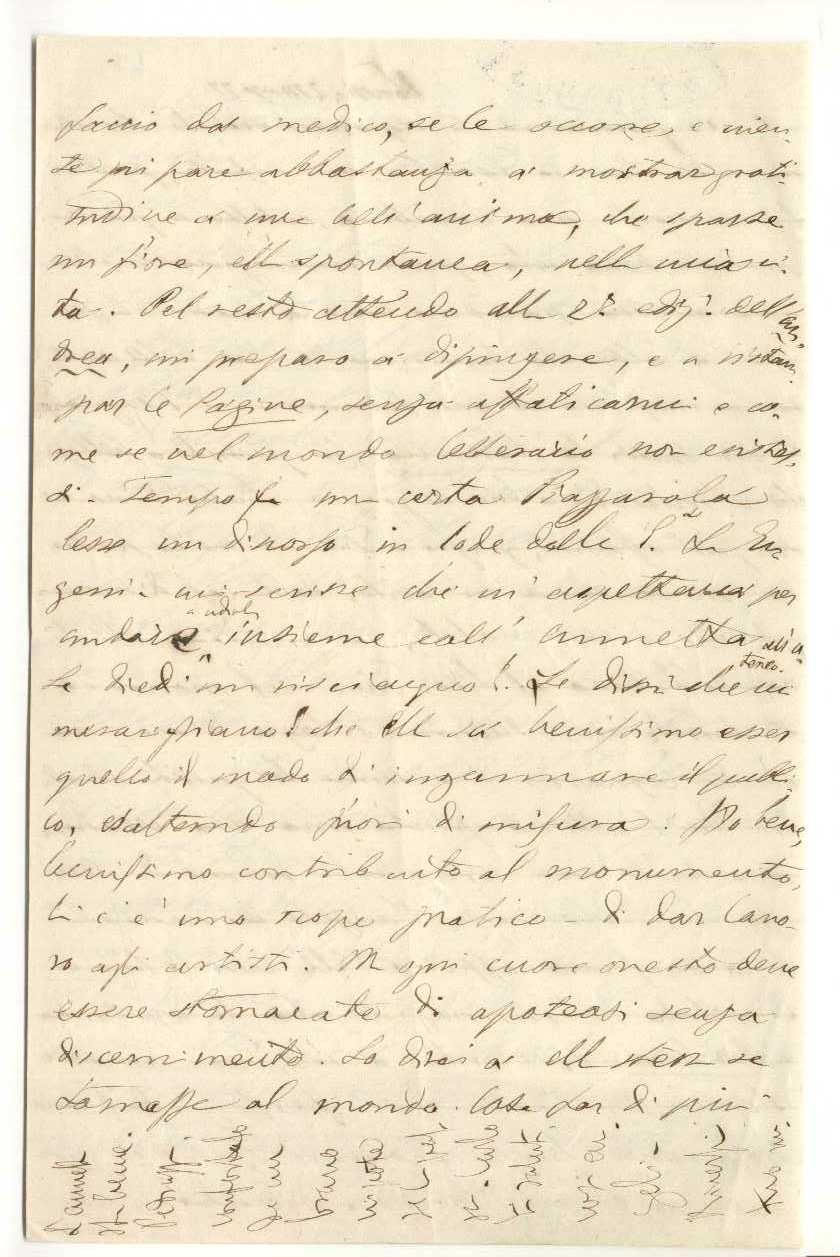 faccio da medico, se le occorre, e nien-
te mi pare abbastanza a mostrar grati-
tudine a un bell'anima, che sparse
un fiore, ella spontanea, nella mia vi-
ta. Pel resto attendo alla 2ª ediz. dell'an-
drea, mi preparo a dipingere, e a ristam-
par le Pagine, senza affaticarmi e co-
me se nel mondo letterario non esistes-
si. Tempo fa un certo Piazzarola
lesse un discorso in lode della P. La Eu-
genia mi scrisse che m'aspettava per
andare a udirlo insieme coll'annetta all'a-
teneo.
Le diedi un risciaquo! Le dissi che mi
meravigliavo! che ella sa benissimo esser
quello il modo di ingannare il pubbli-
co, esaltando fuori di misura. Do bene,
benissimo contributo al monumento,
lì c'è uno scopo pratico - di dar lavo-
ro agli artisti. M ogni cuore onesto deve
essere stomacato di apoteosi senza
discernimento. Lo direi a ella stessa se
tornasse al mondo. Cosa far di più